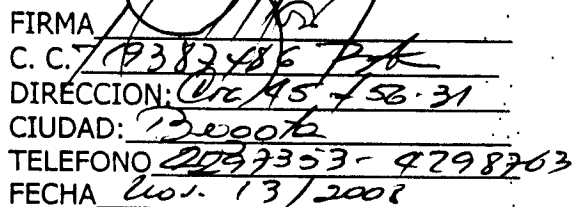 FIRMA
C. C. 19387486 Bgta
DIRECCION: Crc 45 - 56-31
CIUDAD: Bogota
TELEFONO 2097353 - 4298763
FECHA Nov. 13/2008